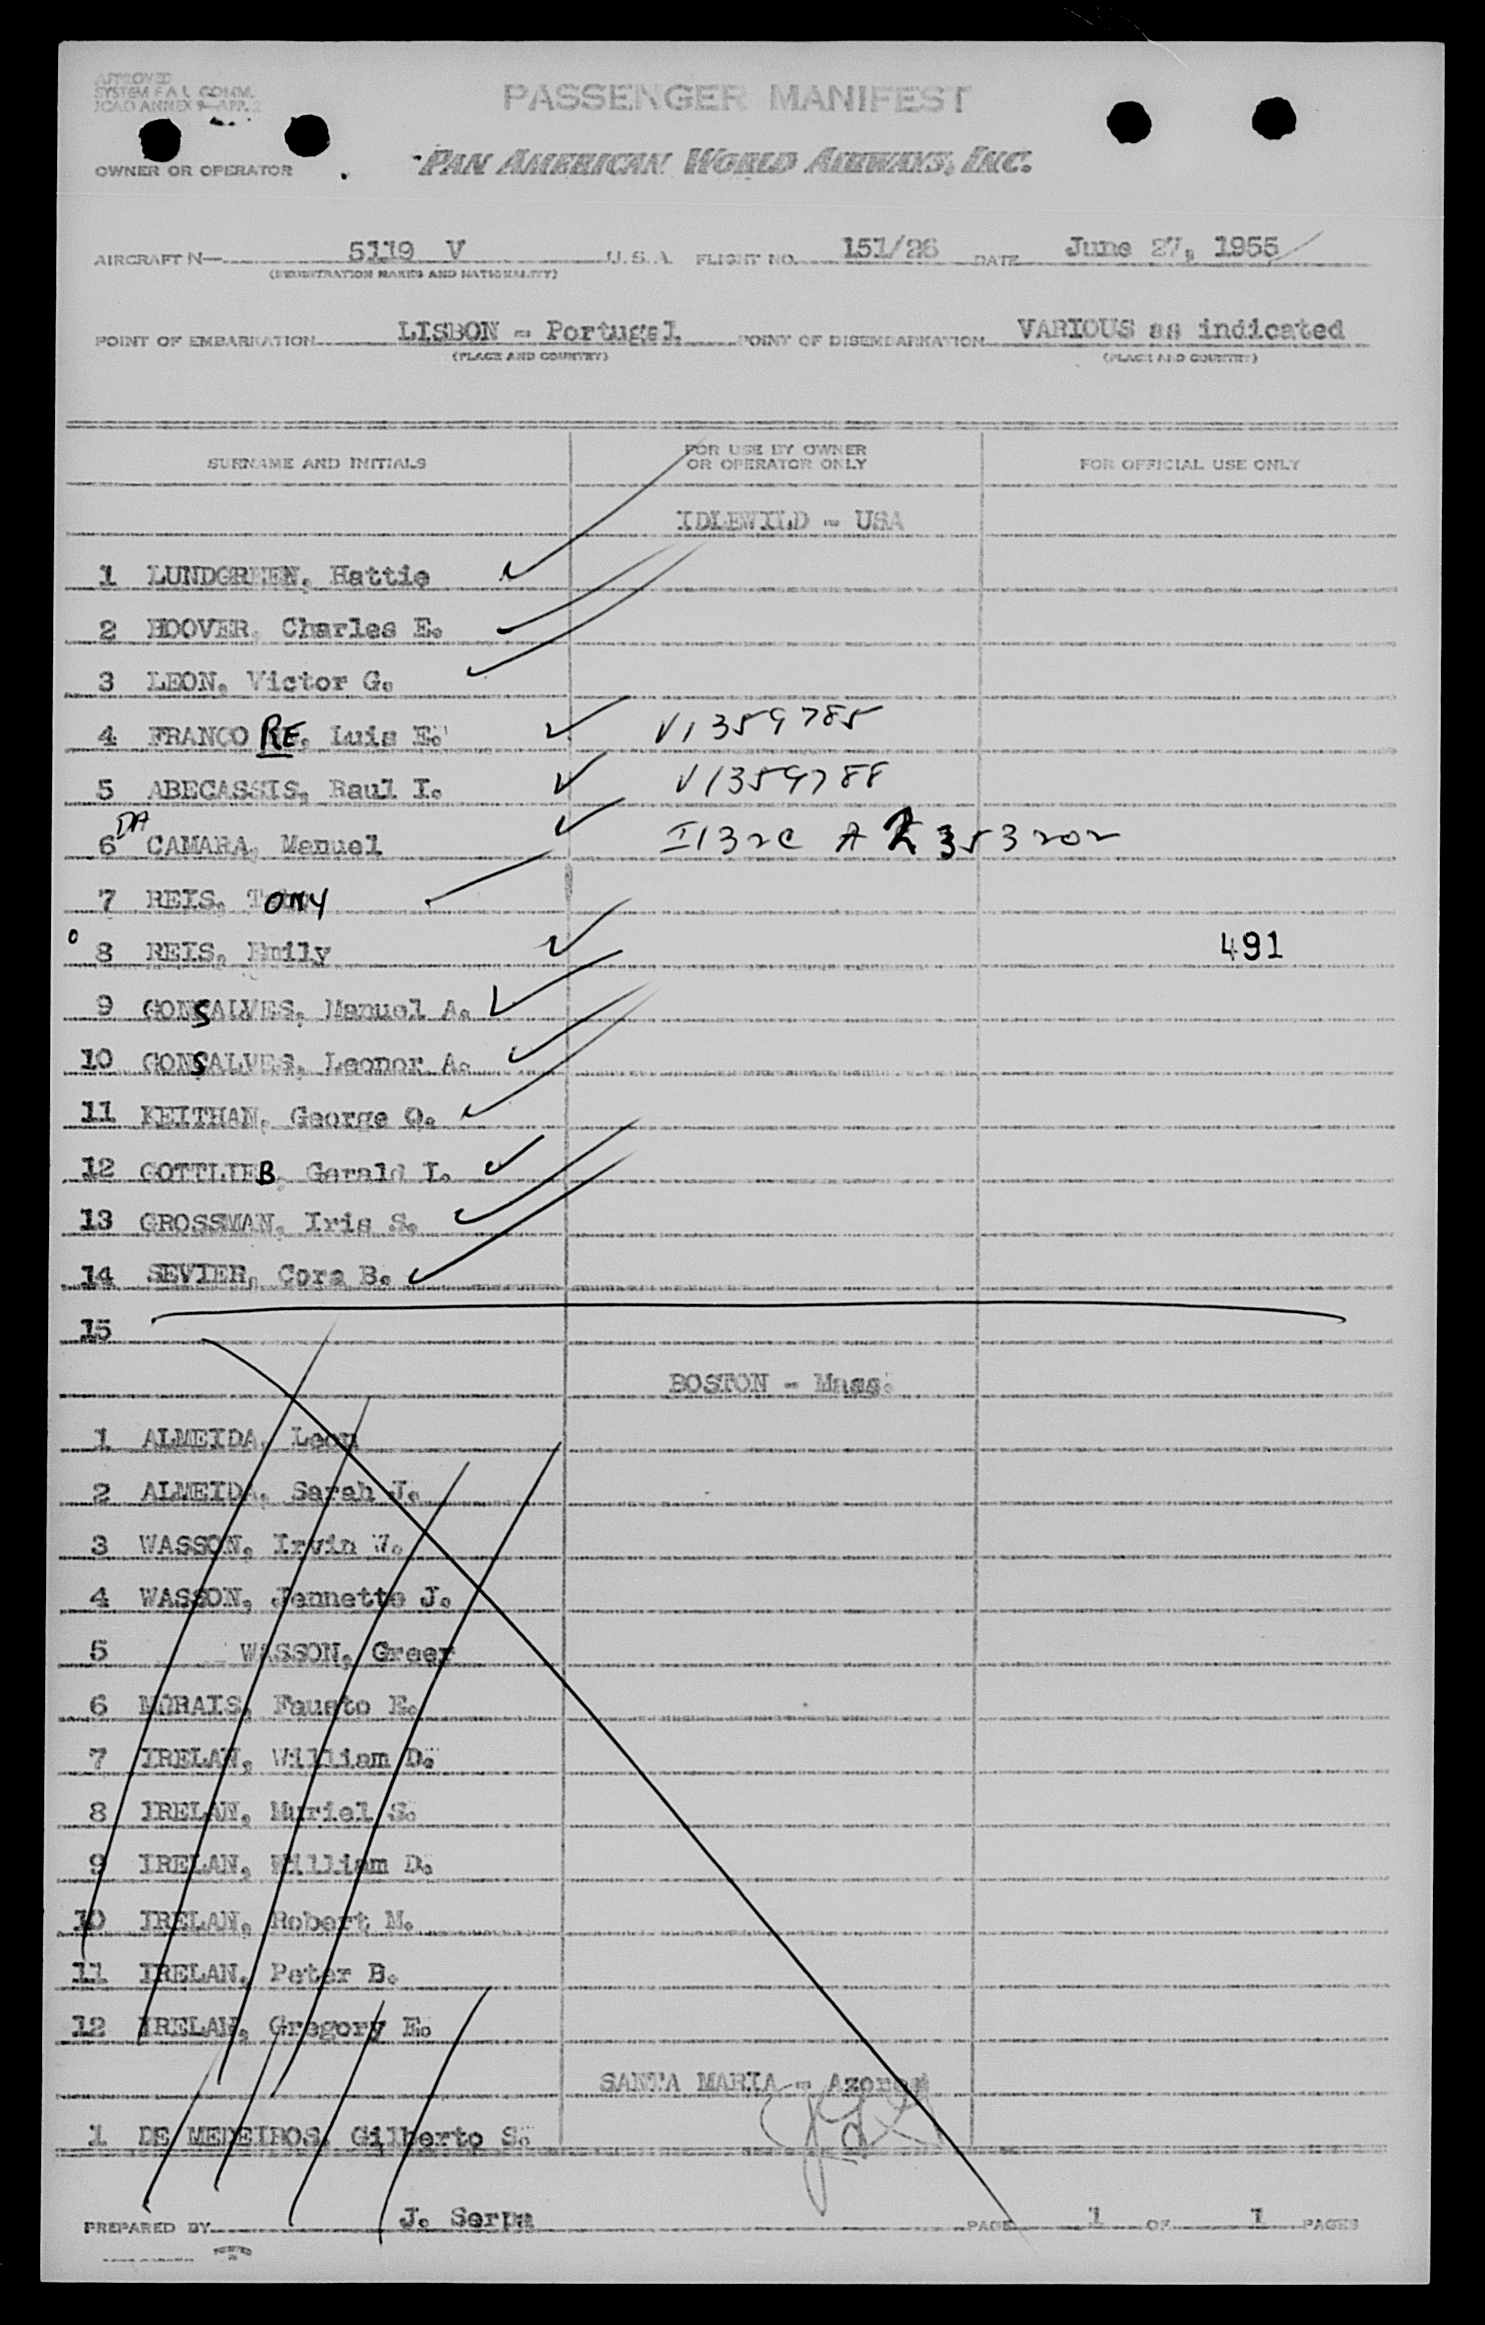 APPROVED
SYSTEM F.A.L. COMM.
ICAO ANNEX 9—APP. 2
PASSENGER MANIFEST
OWNER OR OPERATOR PAN AMERICAN WORLD AIRWAYS, INC.
AIRCRAFT N— 5119 V U.S.A. FLIGHT NO. 151/26 DATE June 27, 1955
(REGISTRATION MARKS AND NATIONALITY)
POINT OF EMBARKATION LISBON - Portugal POINT OF DISEMBARKATION VARIOUS as indicated
(PLACE AND COUNTRY) (PLACE AND COUNTRY)
SURNAME AND INITIALS FOR USE BY OWNER OR OPERATOR ONLY FOR OFFICIAL USE ONLY
IDLEWILD - USA
1 LUNDGREEN, Hattie
2 HOOVER, Charles E.
3 LEON, Victor G.
4 FRANCO RE. Luis E. V1359785
5 ABECASSIS, Raul I. V1359788
6 DA CAMARA, Manuel I132C A2353202
7 REIS, TONY
8 REIS, Emily 491
9 GONSALVES, Manuel A.
10 GONSALVES, Leonor A.
11 KEITHAN, George Q.
12 GOTTLIEB, Gerald I.
13 GROSSMAN, Iris S.
14 SEVIER, Cora B.
15
BOSTON - Mass.
1 ALMEIDA, Leon
2 ALMEIDA, Sarah J.
3 WASSON, Irvin W.
4 WASSON, Jennette J.
5 WASSON, Greer
6 MORAIS, Fausto E.
7 IRELAN, William D.
8 IRELAN, Muriel S.
9 IRELAN, William D.
10 IRELAN, Robert M.
11 IRELAN, Peter B.
12 IRELAN, Gregory E.
SANTA MARIA - Azores
1 DE MEDEIROS, Gilberto S.
PREPARED BY J. Serpa PAGE 1 OF 1 PAGES